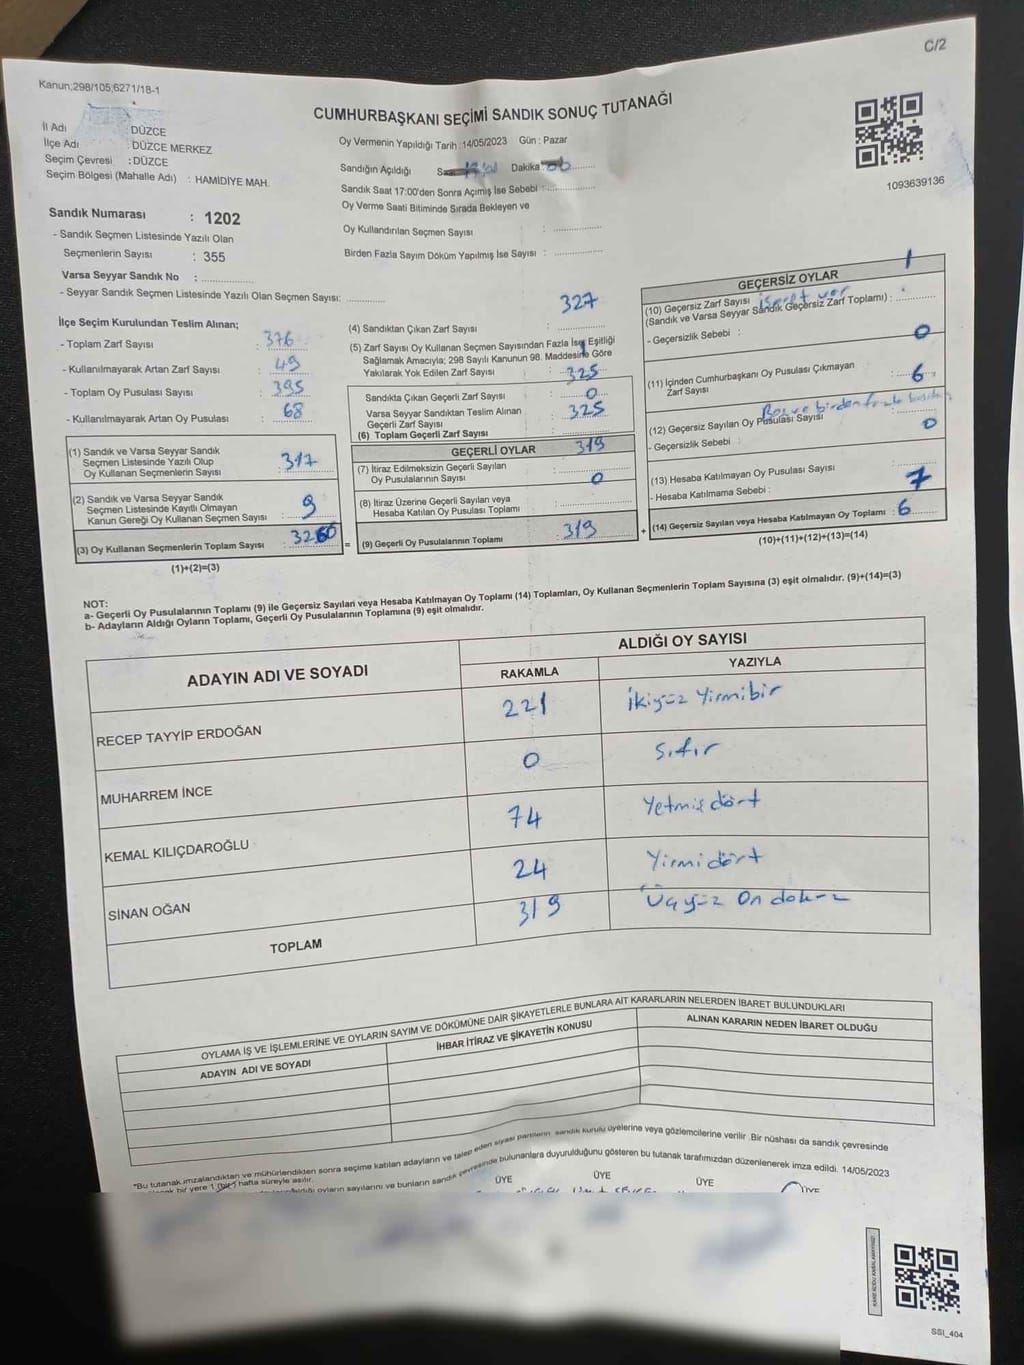 C/2
Kanun;298/105;6271/18-1
CUMHURBAŞKANI SEÇİMİ SANDIK SONUÇ TUTANAĞI
İl Adı : DÜZCE
İlçe Adı : DÜZCE MERKEZ
Seçim Çevresi : DÜZCE
Seçim Bölgesi (Mahalle Adı) : HAMİDİYE MAH.
Oy Vermenin Yapıldığı Tarih :14/05/2023 Gün : Pazar
Sandığın Açıldığı Dakika
Sandık Saat 17:00'den Sonra Açımış İse Sebebi :
Oy Verme Saati Bitiminde Sırada Bekleyen ve
Oy Kullandırılan Seçmen Sayısı :
Birden Fazla Sayım Döküm Yapılmış İse Sayısı :
1093639136
Sandık Numarası : 1202
- Sandık Seçmen Listesinde Yazılı Olan
Seçmenlerin Sayısı : 355
Varsa Seyyar Sandık No :
- Seyyar Sandık Seçmen Listesinde Yazılı Olan Seçmen Sayısı:
İlçe Seçim Kurulundan Teslim Alınan;
- Toplam Zarf Sayısı : 376
- Kullanılmayarak Artan Zarf Sayısı : 49
- Toplam Oy Pusulası Sayısı : 395
- Kullanılmayarak Artan Oy Pusulası : 68
(1) Sandık ve Varsa Seyyar Sandık
Seçmen Listesinde Yazılı Olup
Oy Kullanan Seçmenlerin Sayısı : 317
(2) Sandık ve Varsa Seyyar Sandık
Seçmen Listesinde Kayıtlı Olmayan
Kanun Gereği Oy Kullanan Seçmen Sayısı : 9
(3) Oy Kullanan Seçmenlerin Toplam Sayısı :
(1)+(2)=(3)
327
(4) Sandıktan Çıkan Zarf Sayısı :
(5) Zarf Sayısı Oy Kullanan Seçmen Sayısından Fazla İse, Eşitliği
Sağlamak Amacıyla; 298 Sayılı Kanunun 98. Maddesine Göre
Yakılarak Yok Edilen Zarf Sayısı : 1
325
Sandıkta Çıkan Geçerli Zarf Sayısı : 0
Varsa Seyyar Sandıktan Teslim Alınan
Geçerli Zarf Sayısı : 325
(6) Toplam Geçerli Zarf Sayısı :
GEÇERLİ OYLAR
319
(7) İtiraz Edilmeksizin Geçerli Sayılan
Oy Pusulalarının Sayısı : 0
(8) İtiraz Üzerine Geçerli Sayılan veya
Hesaba Katılan Oy Pusulası Toplamı :
= (9) Geçerli Oy Pusulalarının Toplamı : 319
GEÇERSİZ OYLAR
1
(10) Geçersiz Zarf Sayısı işaret var
(Sandık ve Varsa Seyyar Sandık Geçersiz Zarf Toplamı) :
- Geçersizlik Sebebi : 0
(11) İçinden Cumhurbaşkanı Oy Pusulası Çıkmayan
Zarf Sayısı : 6
Boş ve birden fazla
(12) Geçersiz Sayılan Oy Pusulası Sayısı
- Geçersizlik Sebebi : 0
(13) Hesaba Katılmayan Oy Pusulası Sayısı
- Hesaba Katılmama Sebebi : 7
+ (14) Geçersiz Sayılan veya Hesaba Katılmayan Oy Toplamı : 6
(10)+(11)+(12)+(13)=(14)
NOT:
a- Geçerli Oy Pusulalarının Toplamı (9) ile Geçersiz Sayılan veya Hesaba Katılmayan Oy Toplamı (14) Toplamları, Oy Kullanan Seçmenlerin Toplam Sayısına (3) eşit olmalıdır. (9)+(14)=(3)
b- Adayların Aldığı Oyların Toplamı, Geçerli Oy Pusulalarının Toplamına (9) eşit olmalıdır.
ADAYIN ADI VE SOYADI
ALDIĞI OY SAYISI
RAKAMLA YAZIYLA
RECEP TAYYİP ERDOĞAN 221 İkiyüz Yirmibir
MUHARREM İNCE 0 Sıfır
KEMAL KILIÇDAROĞLU 74 Yetmiş dört
SİNAN OĞAN 24 Yirmi dört
TOPLAM 319 Üçyüz On dokuz
OYLAMA İŞ VE İŞLEMLERİNE VE OYLARIN SAYIM VE DÖKÜMÜNE DAİR ŞİKAYETLERLE BUNLARA AİT KARARLARIN NELERDEN İBARET BULUNDUKLARI
ADAYIN ADI VE SOYADI
İHBAR İTİRAZ VE ŞİKAYETİN KONUSU
ALINAN KARARIN NEDEN İBARET OLDUĞU
"Bu tutanak imzalandıktan ve mühürlendikten sonra seçime katılan adayların ve talep eden siyasi partilerin sandık kurulu üyelerine veya gözlemcilerine verilir .Bir nüshası da sandık çevresinde
bir yere 1 (bir) hafta süreyle asılır.
oyların sayılarını ve bunların sandık çevresinde bulunanlara duyurulduğunu gösteren bu tutanak tarafımızdan düzenlenerek imza edildi. 14/05/2023
ÜYE ÜYE ÜYE ÜYE
SSI_404